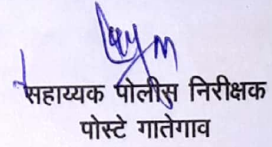 सहाय्यक पोलीस निरीक्षक
पोस्टे गातेगाव